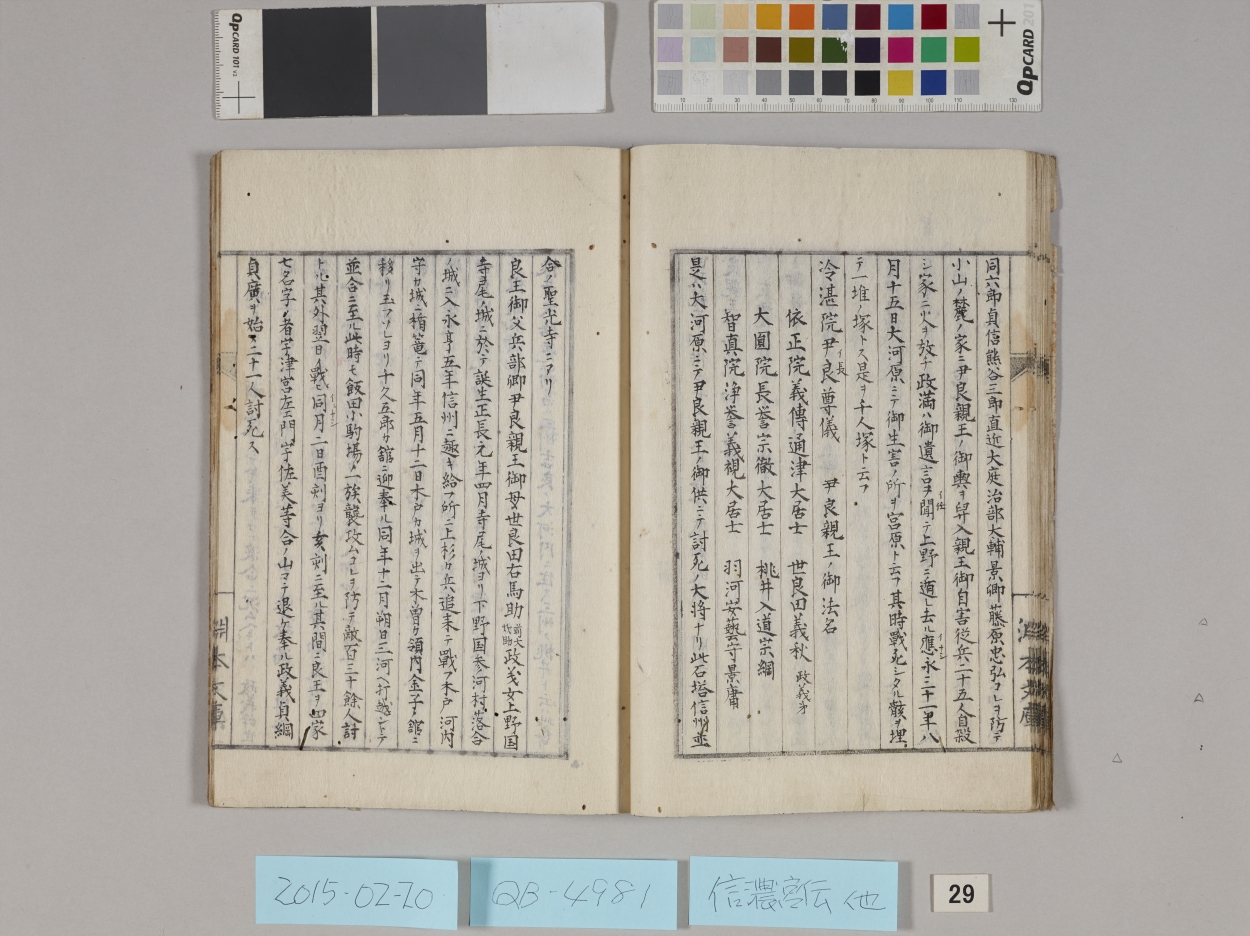 QpCARD 101 v3
QpCARD 201
10 20 30 40 50 60 70 80 90 100 110 130
同六郎貞信熊谷三郎直近大庭治部大輔景郷藤原忠弘コレヲ防テ
小山ノ麓ノ家ニ尹良親王ノ御輿ヲ舁入親王御自害従兵二十五人自殺
シ家ニ火ヲ放チ政満ハ御遺言ヲ聞テ上野ニ遁レ去ル應永三十一年八
月十五日大河原ニテ御生害ノ所ヲ宮原ト云フ其時戦死シタル骸ヲ埋
テ一堆ノ塚トス是ヲ千人塚ト云フ
冷湛院尹良尊儀 尹良親王ノ御法名
イ長
依正院義傳通津大居士 世良田義秋 政義弟
大圓院長誉宗徹大居士 桃井入道宗綱
智真院浄誉義視大居士 羽河安藝守景庸
是ハ大河原ニテ尹良親王ノ御供ニテ討死ノ大将ナリ此石塔信州並
合ノ聖光寺ニアリ
良王御父兵部卿尹良親王御母世良田右馬助政義女上野国
寺尾ノ城ニ於テ誕生正長元年四月寺尾ノ城ヨリ下野国参河村落合
ノ城ニ入永享五年信州ニ趣キ給フ所ニ上杉カ兵追来テ戦フ木戸河内
守カ城ニ楯篭テ同年五月十二日木戸カ城ヲ出テ木曽カ領内金子ノ舘ニ
移リ玉フソレヨリ千久五郎カ舘ニ迎奉ル同年十二月朔日三河ヘ打越ントテ
並合ニ至ル此時モ飯田小駒場ノ一族襲攻ムコレヲ防テ敵百三十餘人討
トル其外翌日ノ戦モ同月二日酉刻ヨリ亥刻ニ至ル其間ニ良王ヲ四家
七名字ノ者宇津宮左エ門宇佐美等合ノ山マテ退ケ奉ル政義貞綱
貞廣ヲ始メ二十一人討死ス
2015-02-20
QB-4981
信濃宮伝 他
29